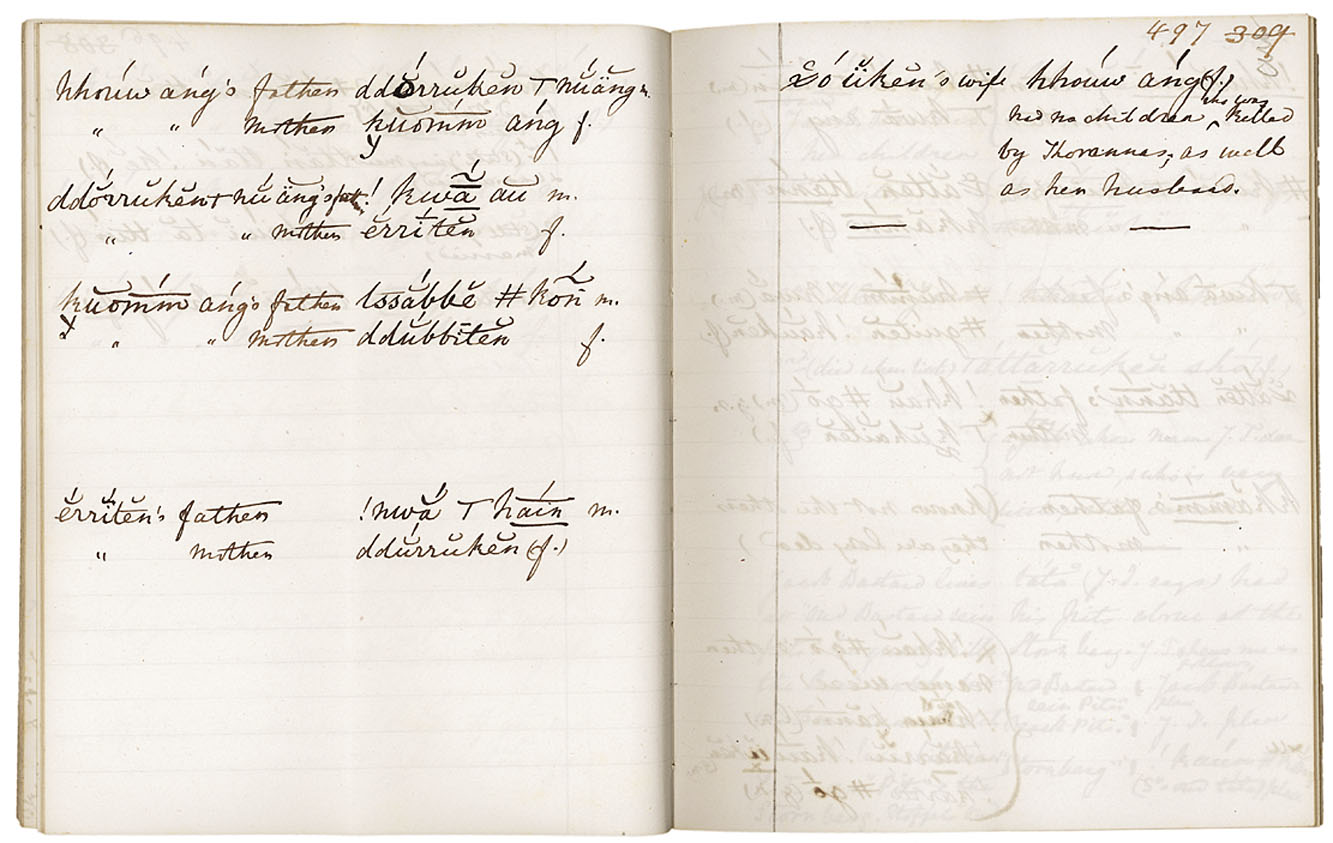 hhóuw áng's father ddórrŭkĕn T nŭäng m.
" " mother kŭomm áng f.
ddŏrrŭkĕn T nŭäng's fath. ! kwā aŭ m.
" " mother ĕrrĭtĕn f.
kŭomm áng's father lssắbbĕ # koñ m.
" " mother ddŭbbĭtĕn f.
ĕrrĭtĕn's father !nwắ T háin m.
" mother ddúrrŭkĕn (f.)
497 309
ŭkĕn's wife hhóuw áng (f.)
had no children, she was killed
by Thorannas, as well
as her husband.